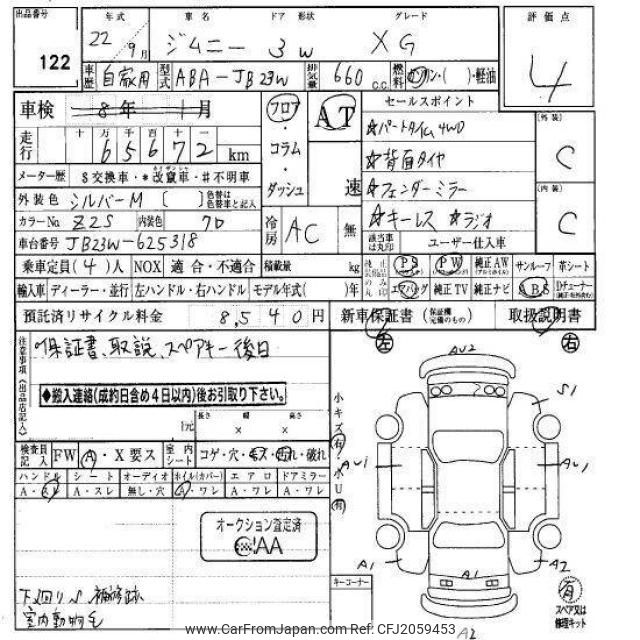 出品番号 122
年式 22年 9月
車名 ジムニー
ドア 形状 3W
グレード XG
評価点 4
車歴 自家用
型式 ABA-JB23W
排気量 660 c.c.
燃料 ガソリン・( )・軽油
車検 8年 1月
走行 十 万 千 百 十 一
6 5 6 7 2 km
フロア・コラム・ダッシュ
AT 速
セールスポイント
☆パートタイム4WD
☆背面タイヤ
☆フェンダーミラー
☆キーレス ☆ラジオ
[外装] C
[内装] C
メーター歴 $交換車・*改竄車・#不明車
外装色 シルバーM 〔 〕 色替は色替車と記入
カラーNo Z2S 内装色 クロ
車台番号 JB23W-625318
冷房 AC 無
該当車は丸印 ユーザー仕入車
乗車定員(4)人 NOX 適合・不適合 積載量 kg
純正のみ丸印 PS PW 純正AW サンルーフ 革シート
輸入車 ディーラー・並行 左ハンドル・右ハンドル モデル年式( )年
エアバッグ 純正TV 純正ナビ ABS Dチューナー
預託済リサイクル料金 8,540円 新車保証書 (保証継 完備のもの) 取扱説明書
注意事項(出品店記入)
保証書、取説、スペアキー後日
◆搬入連絡(成約日含め4日以内)後お引取り下さい。
長さ 幅 高さ
t元 × ×
検査員記入 FW A・X要ス 室内シート コゲ・穴・キズ・汚れ・破れ
ハンドル シート オーディオ ホイル(カバー) エアロ ドアミラー
A・スレ A・スレ 無し・穴 A・ワレ A・ワレ A・ワレ
オークション査定済
AA
下回りS 補修跡
室内動物毛
小キズ(有)・小U(有)
左 右
AU2
S1
AU1
AU1
A1
A1
A2
A2
キーコーナー
有
スペア又は修理キット
www.CarFromJapan.com Ref.CFJ2059453